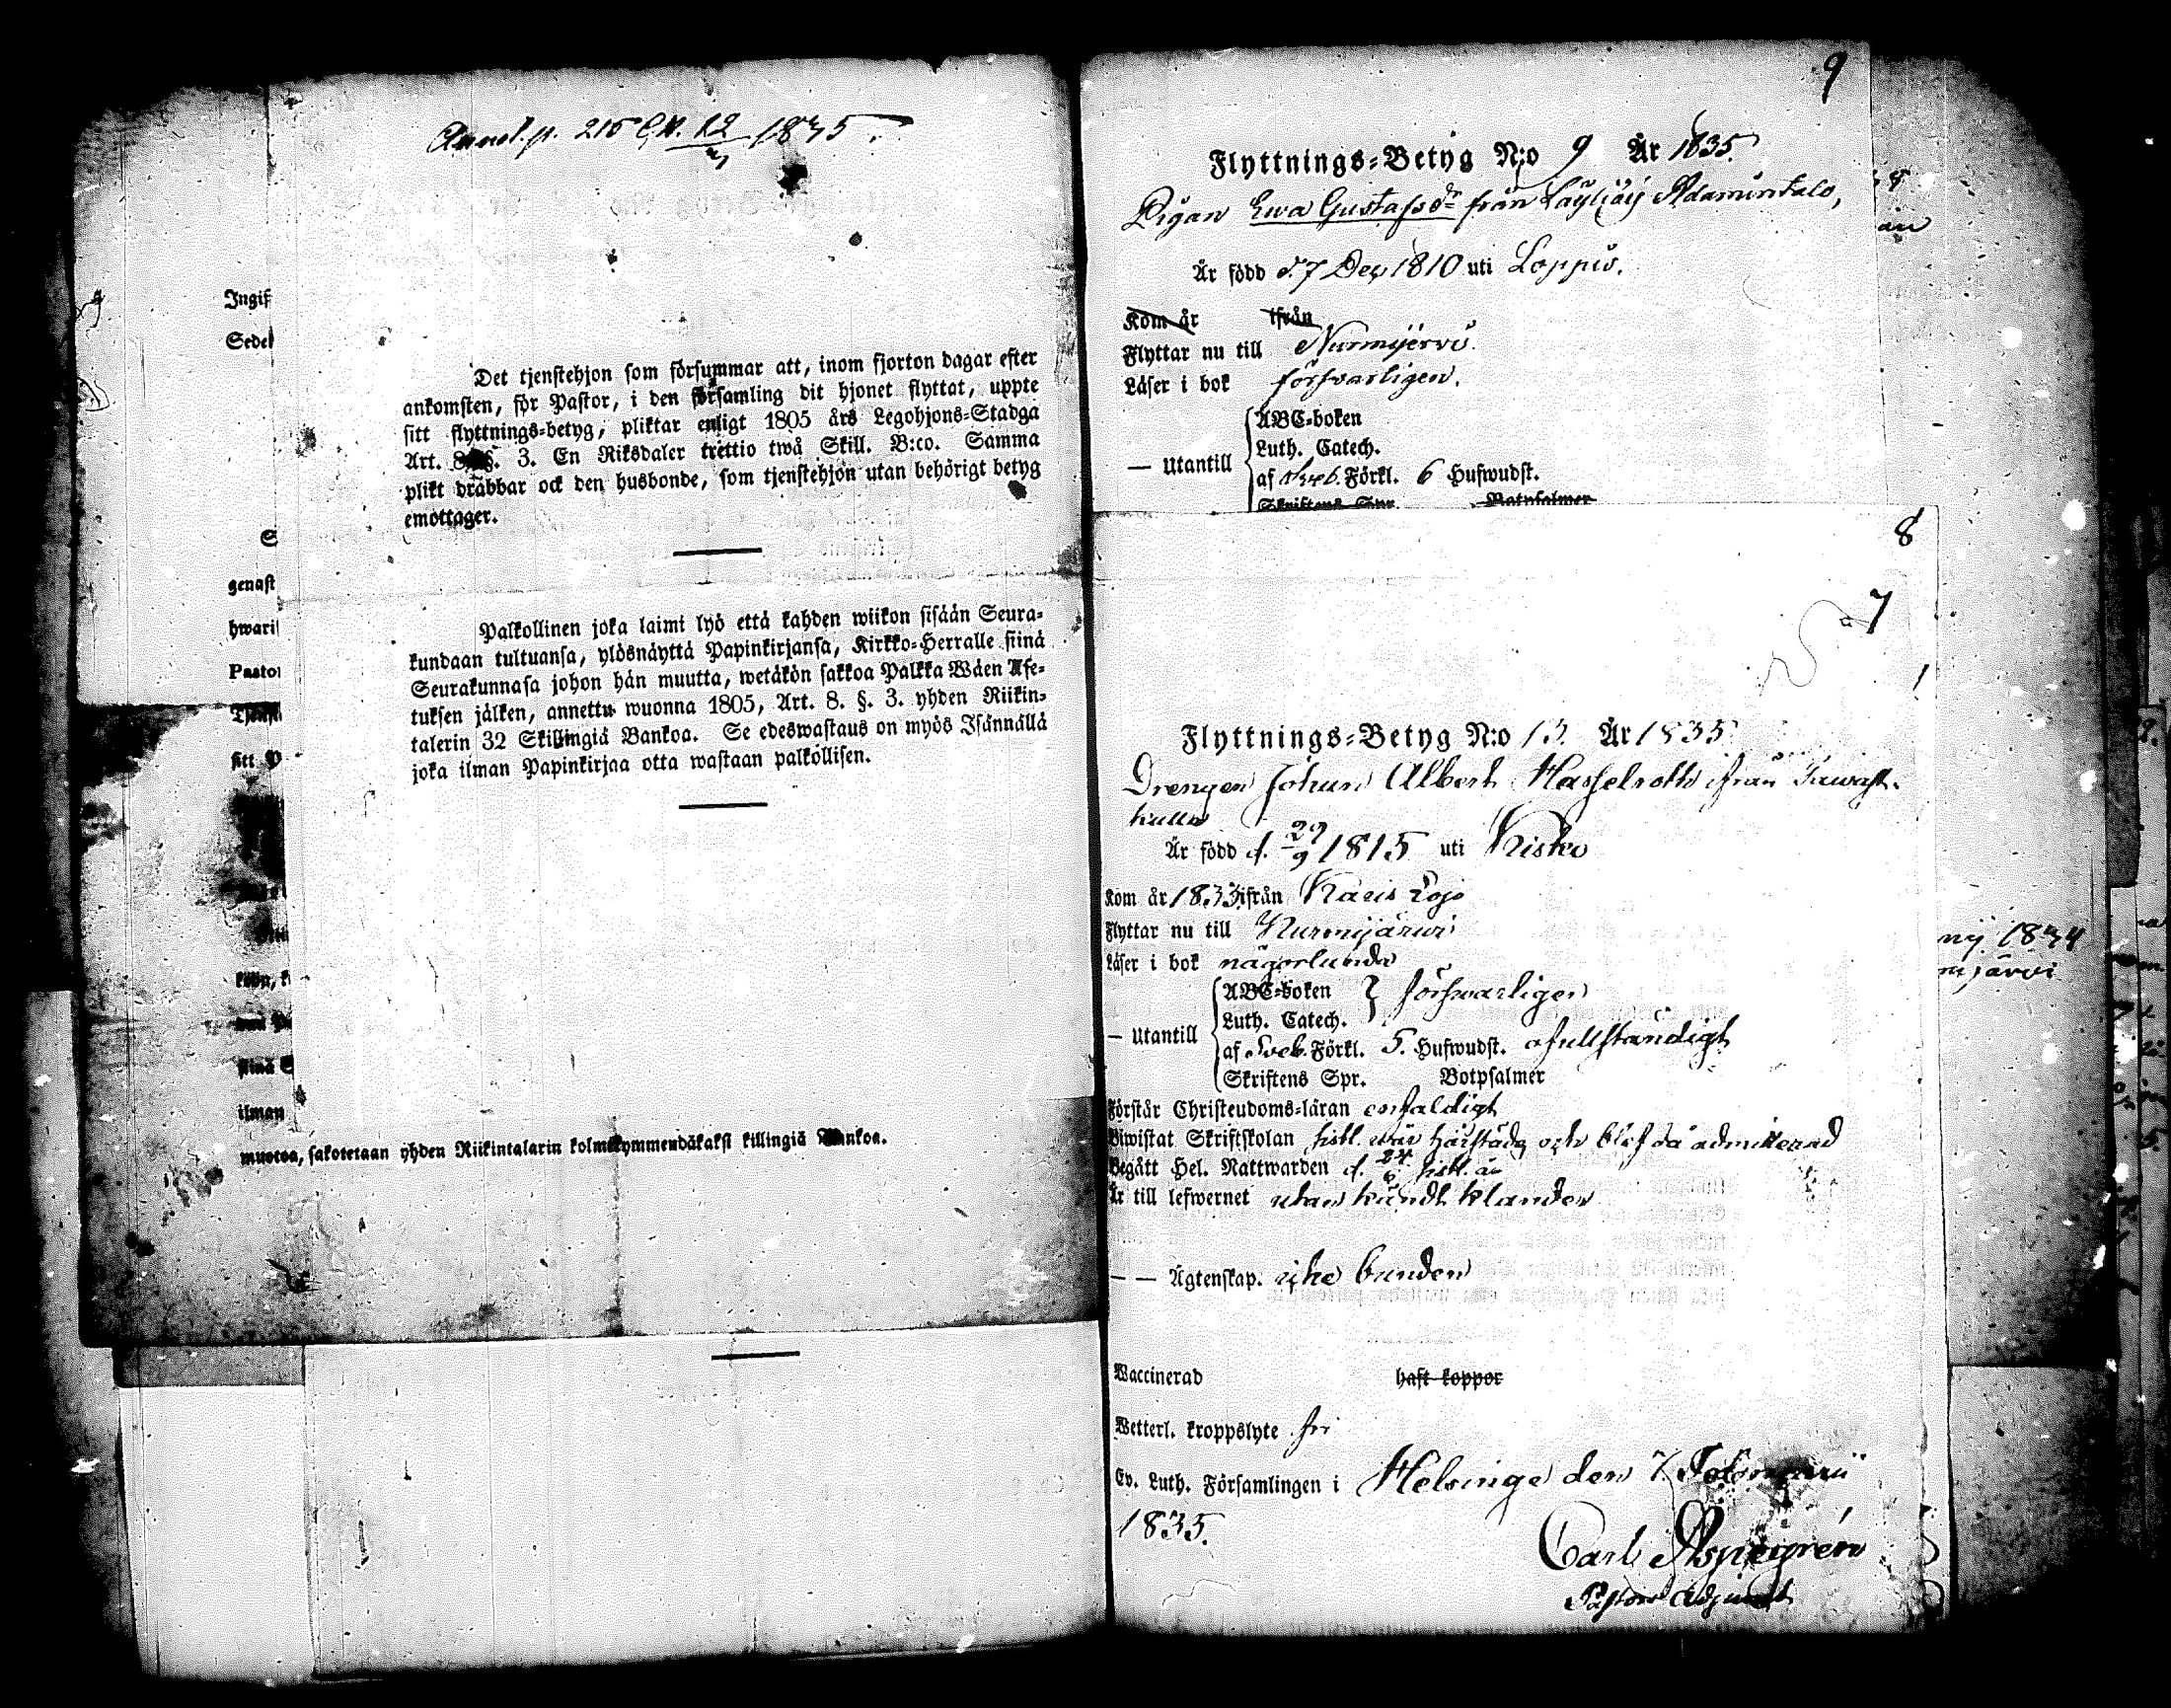 Annot. p. 216 1835.
Ingif
Sedel
Det tjenstehjon som försummar att, inom fjorton dagar efter
ankomsten, för Pastor, i den församling dit hjonet flyttat, uppte
sitt flyttnings-betyg, pliktar enligt 1805 års Legohjons-Stadga
Art. 8. §. 3. En Riksdaler trettio twå Skill. B:co. Samma
plikt drabbar ock den husbonde, som tjenstehjon utan behörigt betyg
emottager.
genast
hwaris
Pastor
Palkollinen joka laimi lyö että kahden wiikon sisään Seura-
kundaan tultuansa, ylösnäyttä Papinkirjansa, Kirkko-Herralle siinä
Seurakunnasa johon hän muutta, wetäkön sakkoa Palkka Wäen Ase-
tuksen jälken, annettu wuonna 1805, Art. 8. §. 3. yhden Riikin-
talerin 32 Skillingiä Bankoa. Se edeswastaus on myös Isännällä
joka ilman Papinkirjaa otta wastaan palkollisen.
sitt
siinä S
ilman
muotoa, sakotetaan yhden Riikintalarin kolmekymmendäkaksi killingiä Bankoa.
9
Flyttnings-Betyg N:o 9 År 1835.
Pigan Ewa Gustafsdr från Läyliäis Adamintalo,
Är född d. 7 Dec 1810 uti Loppis.
Kom år ifrån
Flyttar nu till Nurmijervi.
Läser i bok försvarligen.
— Utantill
ABC-boken
Luth. Catech.
af Sveb. Förkl. 6 Hufwudst.
Skriftens Spr. Botpsalmer
8
7
Flyttnings-Betyg N:o 13. År 1835
Drengen Johan Albert Hasselroth ifrån Tawast-
kulla
Är född d. 29/9 1815 uti Kisko
Kom år 1833 ifrån Karis Lojo
Flyttar nu till Nurmijärwi
Läser i bok någorlunda
— Utantill
ABC-boken } försvarligen
Luth. Catech.
af Sveb. Förkl. 5. Hufwudst. ofullständigt
Skriftens Spr. Botpsalmer
Förstår Christendoms-läran enfaldigt
Biwistat Skriftskolan sistl. wår härstädes och blef då admitterad
Begått Hel. Nattwarden d. 24/6 sistl. år
Är till lefwernet utan kändt klander
— — Ägtenskap. icke bunden
Waccinerad haft koppor
Wetterl. kroppslyte fri
Ev. Luth. Församlingen i Helsinge den 7 Februarii
1835.
Carl Aspegrén
Pastors Adjunct
1834
mjärvi